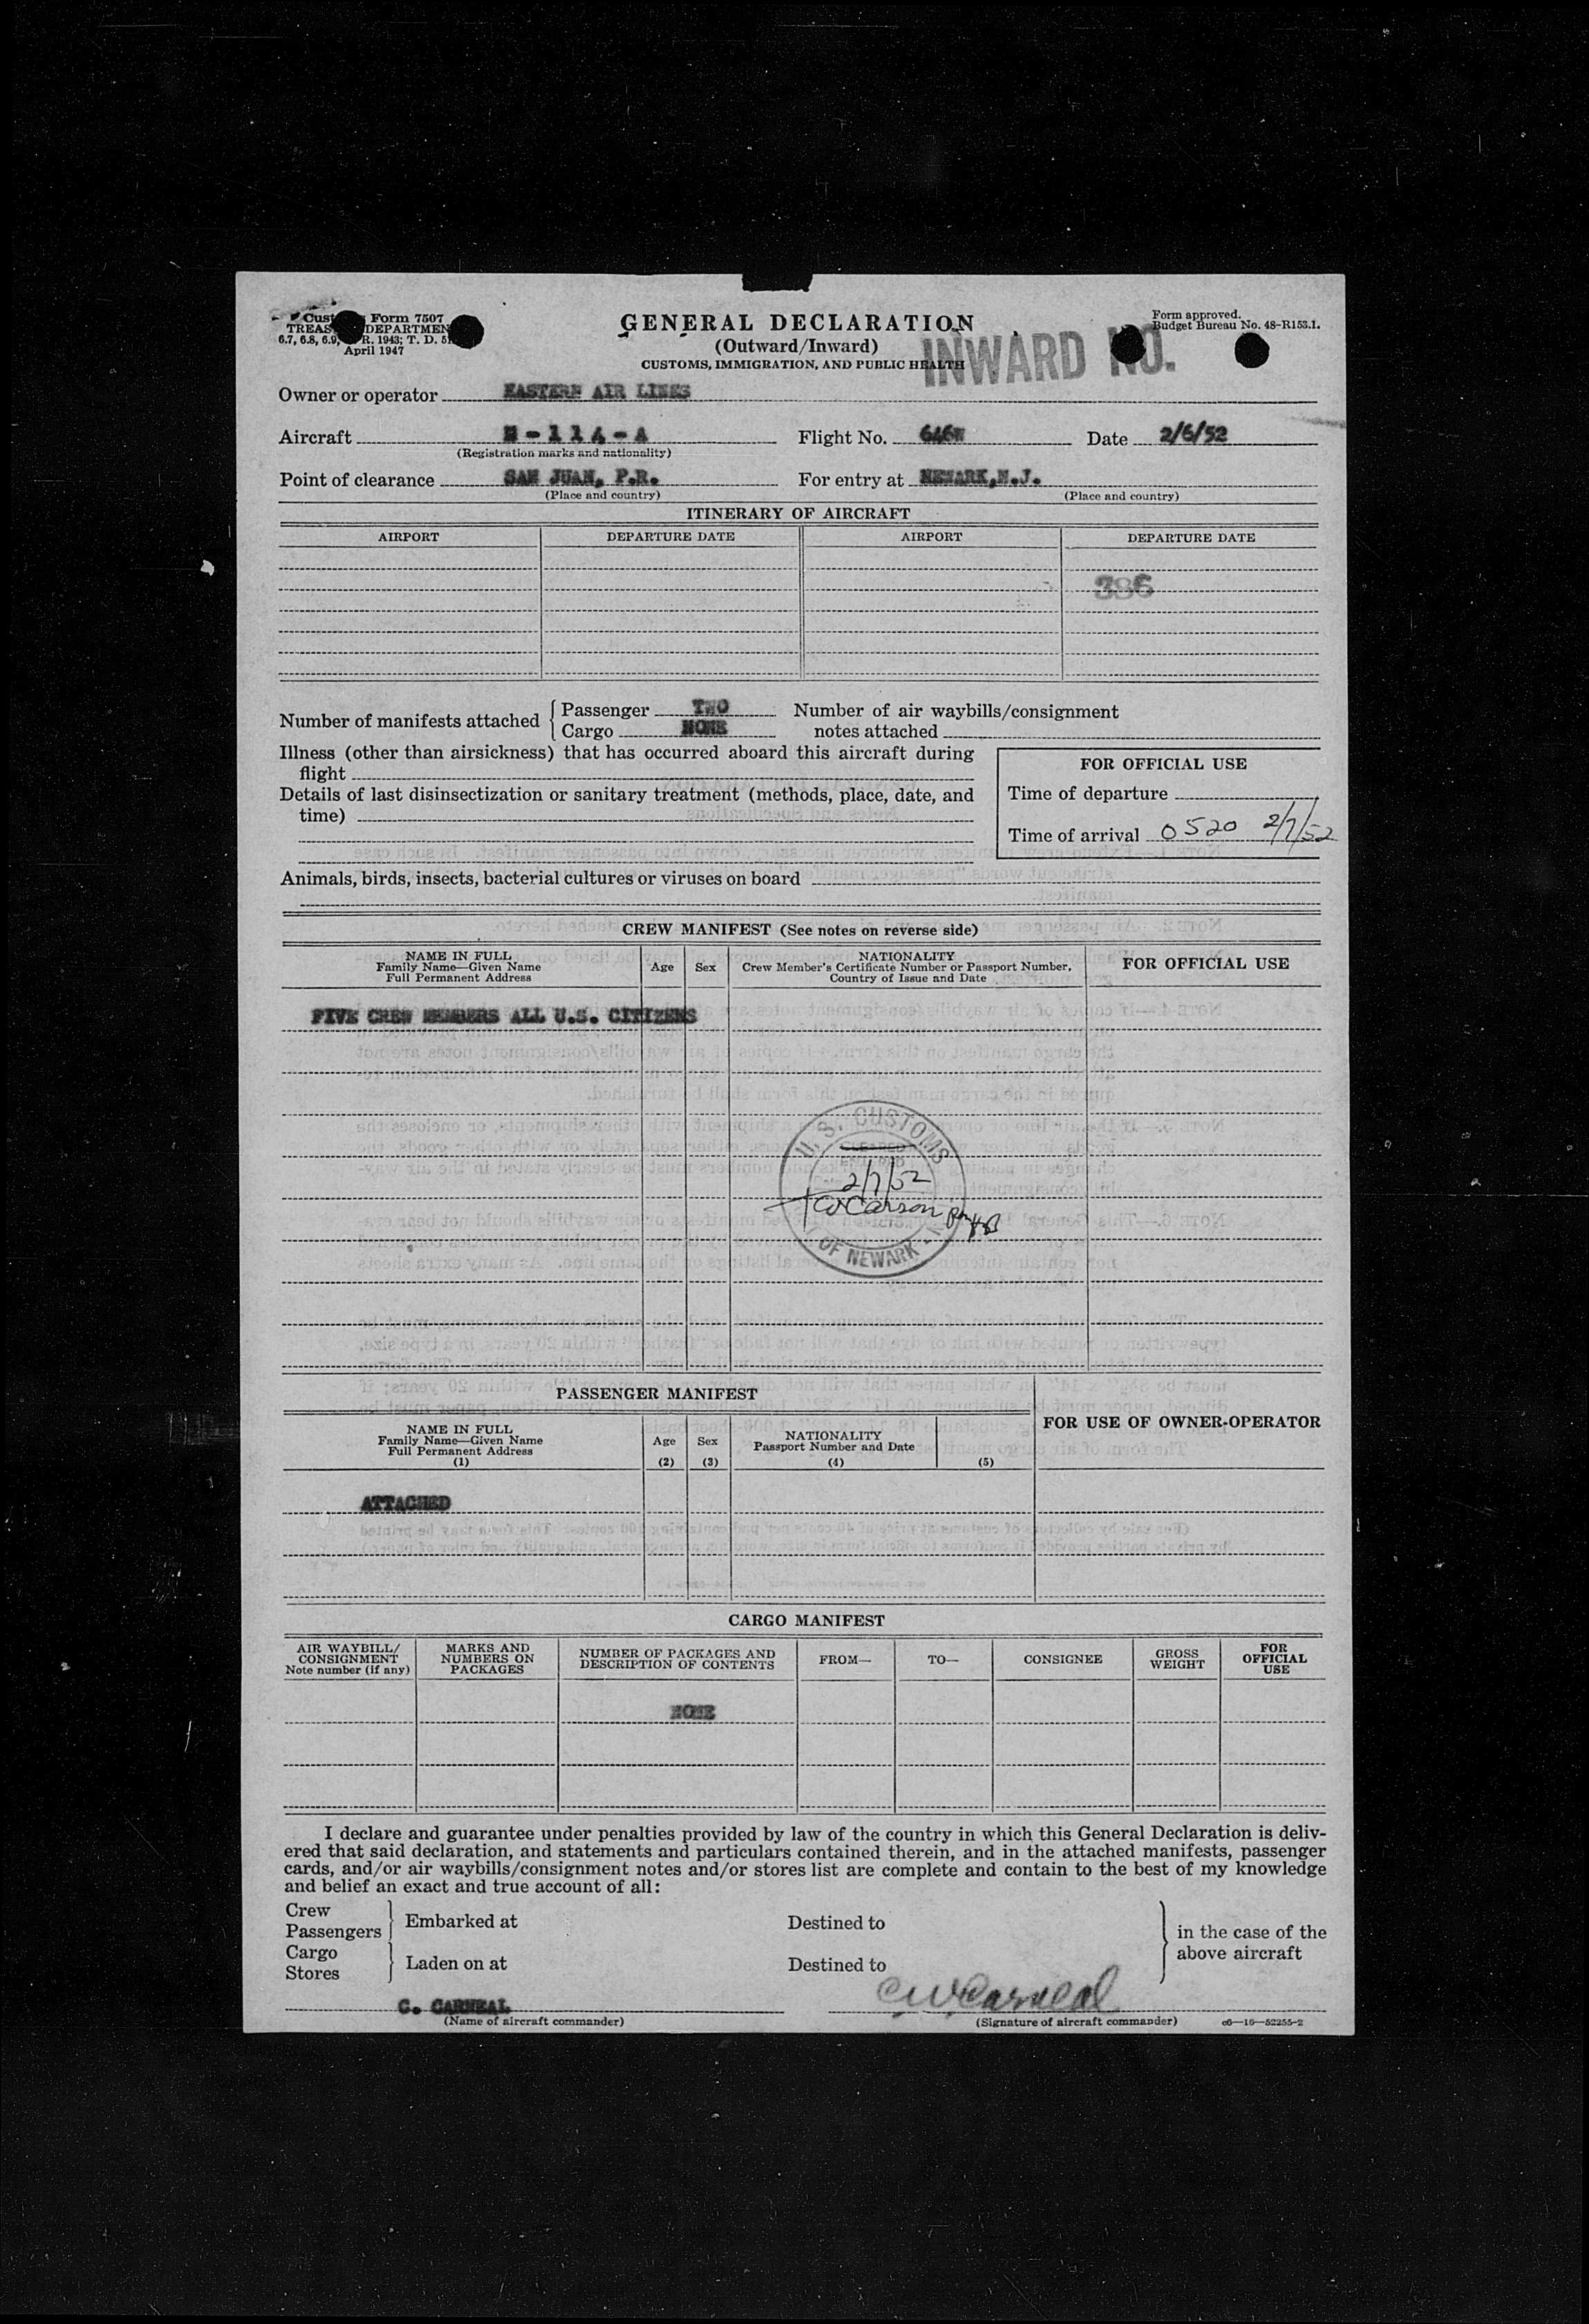 Customs Form 7507
TREASURY DEPARTMENT
6.7, 6.8, 6.9, R. 1943; T. D. 51
April 1947
GENERAL DECLARATION
(Outward/Inward)
CUSTOMS, IMMIGRATION, AND PUBLIC HEALTH
Form approved.
Budget Bureau No. 48-R153.1.
INWARD NO.
Owner or operator EASTERN AIR LINES
Aircraft N-114-A Flight No. 646W Date 2/6/52
(Registration marks and nationality)
Point of clearance SAN JUAN, P.R. For entry at NEWARK,N.J.
(Place and country) (Place and country)
ITINERARY OF AIRCRAFT
AIRPORT DEPARTURE DATE AIRPORT DEPARTURE DATE
386
Number of manifests attached Passenger TWO Number of air waybills/consignment
Cargo NONE notes attached
Illness (other than airsickness) that has occurred aboard this aircraft during
flight
FOR OFFICIAL USE
Details of last disinsectization or sanitary treatment (methods, place, date, and
time)
Time of departure
Time of arrival 0520 2/7/52
Animals, birds, insects, bacterial cultures or viruses on board
CREW MANIFEST (See notes on reverse side)
NAME IN FULL
Family Name—Given Name
Full Permanent Address
Age Sex
NATIONALITY
Crew Member's Certificate Number or Passport Number,
Country of Issue and Date
FOR OFFICIAL USE
FIVE CREW MEMBERS ALL U.S. CITIZENS
U.S. CUSTOMS
2/7/52
WCarson
OF NEWARK - N
PASSENGER MANIFEST
FOR USE OF OWNER-OPERATOR
NAME IN FULL
Family Name—Given Name
Full Permanent Address
(1)
Age
(2)
Sex
(3)
NATIONALITY
Passport Number and Date
(4) (5)
ATTACHED
CARGO MANIFEST
AIR WAYBILL/
CONSIGNMENT
Note number (if any)
MARKS AND
NUMBERS ON
PACKAGES
NUMBER OF PACKAGES AND
DESCRIPTION OF CONTENTS
FROM— TO— CONSIGNEE
GROSS
WEIGHT
FOR
OFFICIAL
USE
NONE
I declare and guarantee under penalties provided by law of the country in which this General Declaration is deliv-
ered that said declaration, and statements and particulars contained therein, and in the attached manifests, passenger
cards, and/or air waybills/consignment notes and/or stores list are complete and contain to the best of my knowledge
and belief an exact and true account of all:
Crew
Passengers Embarked at Destined to
in the case of the
above aircraft
Cargo
Stores Laden on at Destined to
C. CARNEAL CWCarneal
(Name of aircraft commander) (Signature of aircraft commander) c6—16—52255-2